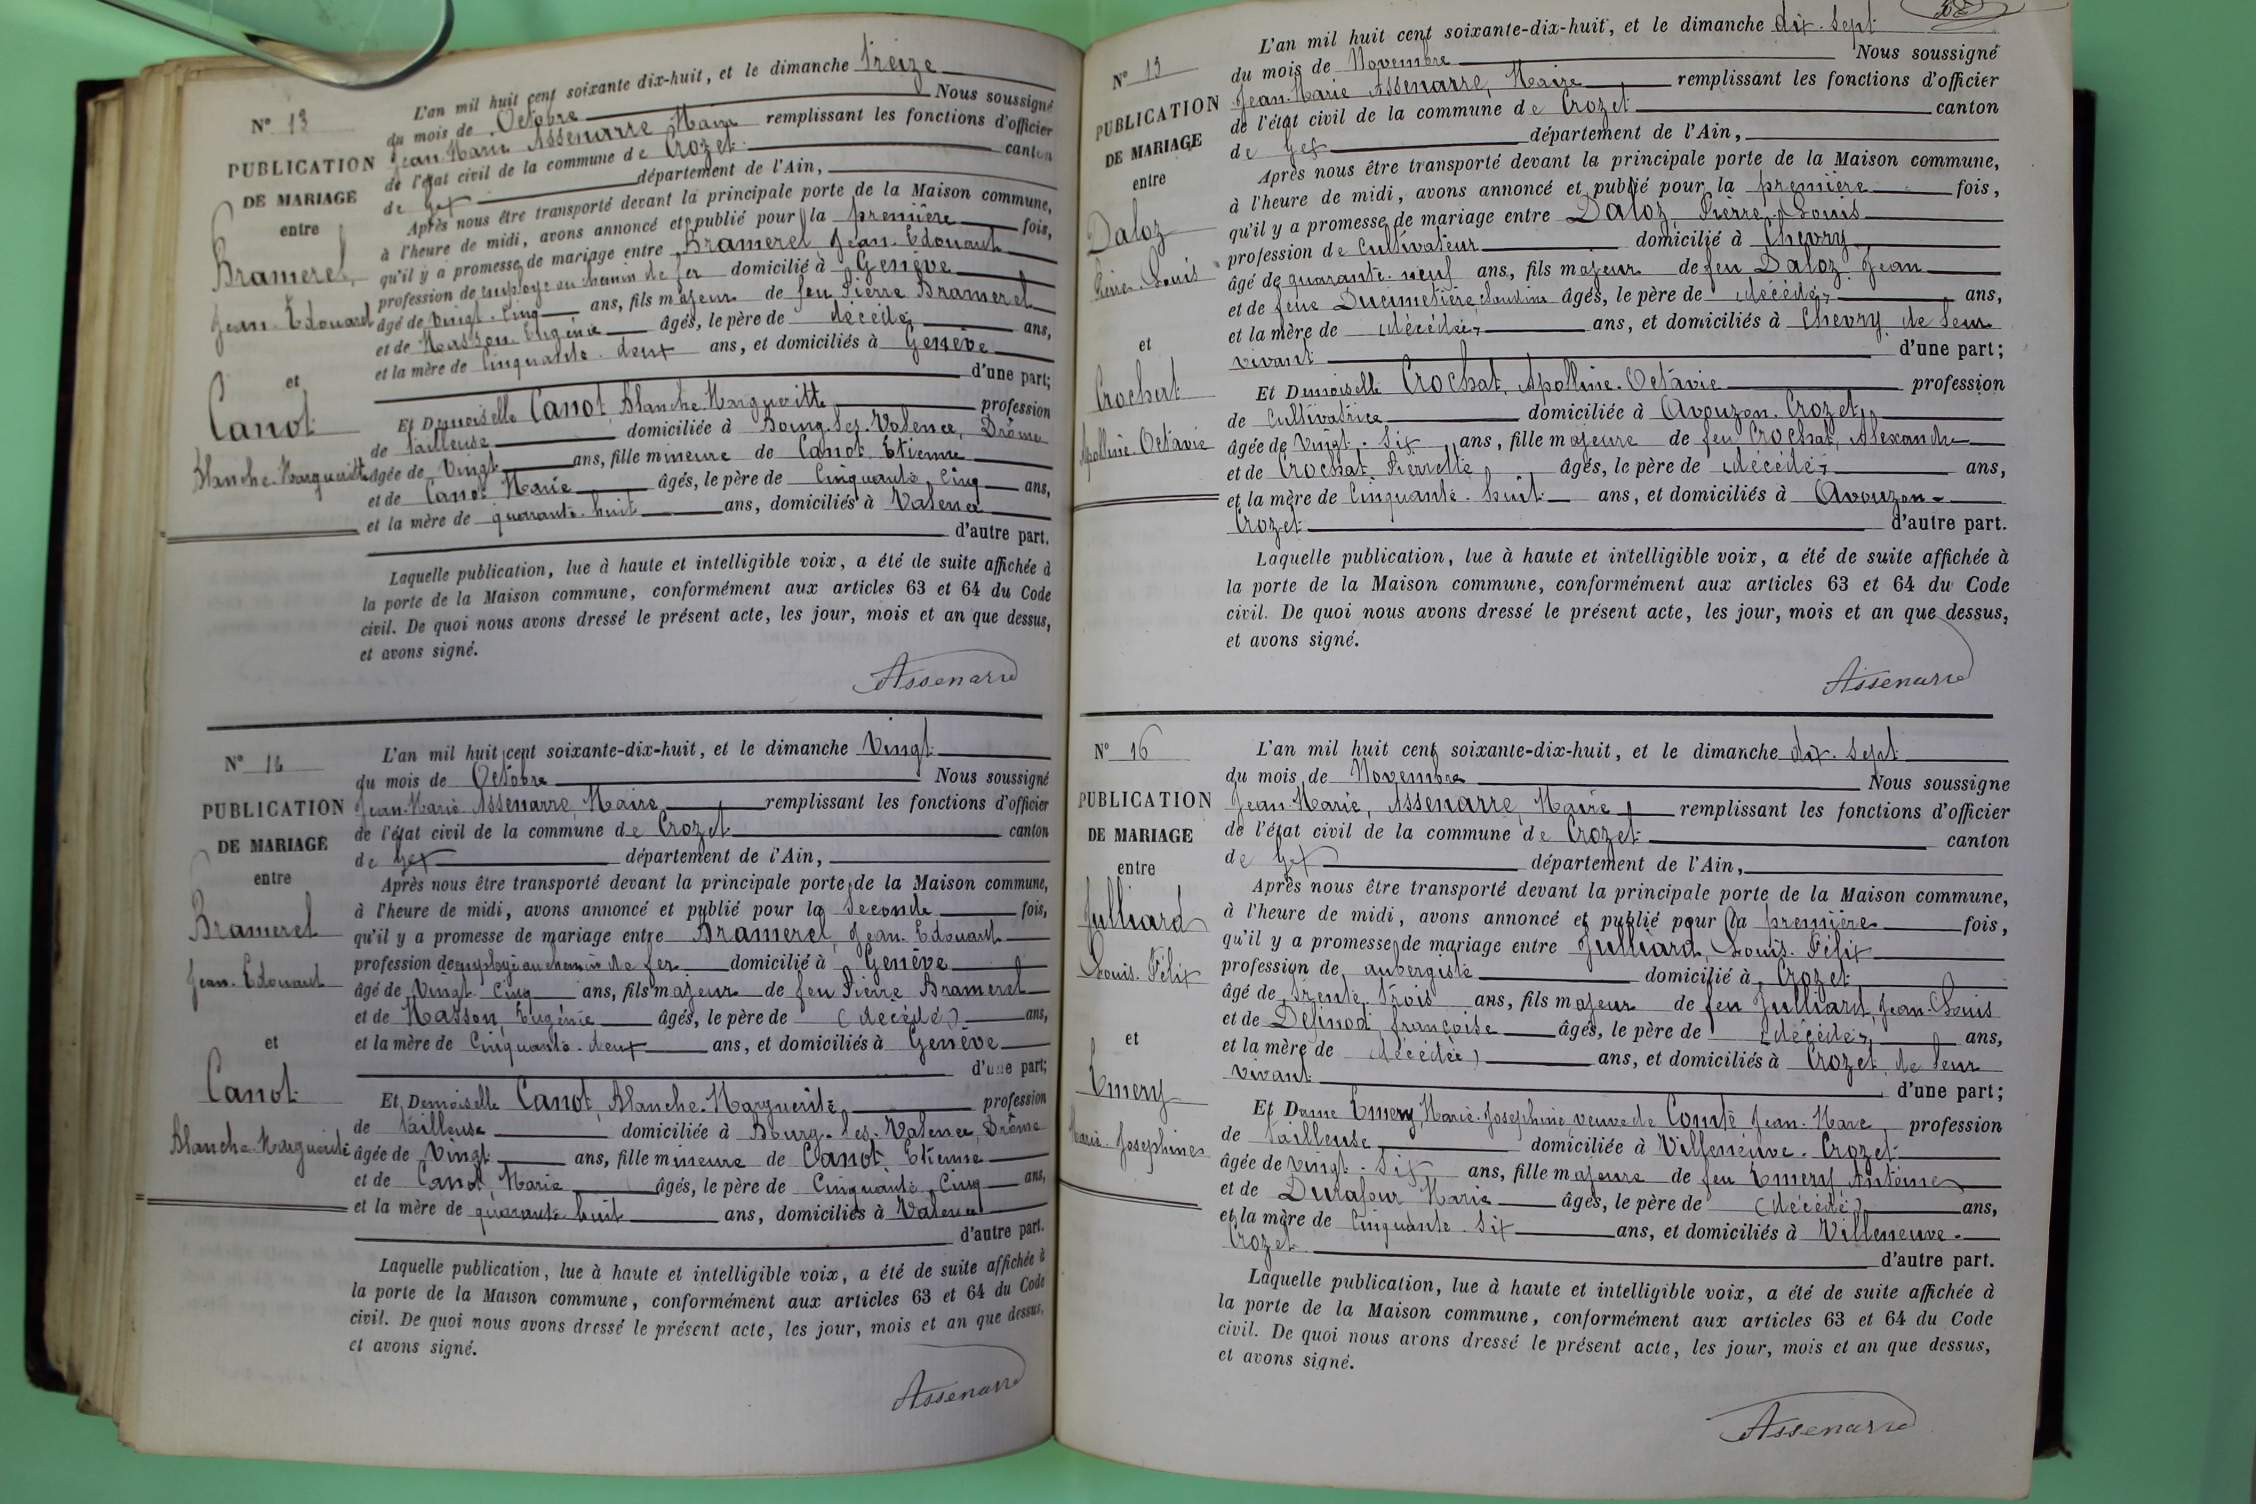 N° 13
PUBLICATION
DE MARIAGE
entre
Bramerel
Jean-Edouard
et
Canot
Blanche-Marguerite
L'an mil huit cent soixante dix-huit, et le dimanche treize
du mois de Octobre Nous soussigné
Jean-Marie Assenarre, Maire remplissant les fonctions d'officier
de l'état civil de la commune de Crozet canton
de Gex département de l'Ain,
Après nous être transporté devant la principale porte de la Maison commune,
à l'heure de midi, avons annoncé et publié pour la première fois,
qu'il y a promesse de mariage entre Bramerel Jean-Edouard
profession de employé au chemin de fer domicilié à Genève
âgé de vingt-cinq ans, fils majeur de feu Pierre Bramerel
et de Masson, Eugénie âgés, le père de décédé, ans,
et la mère de Cinquante-deux ans, et domiciliés à Genève
d'une part;
Et Demoiselle Canot, Blanche-Margueritte profession
de tailleuse domiciliée à Bourg-les-Valence, Drôme
âgée de Vingt ans, fille mineure de Canot, Etienne
et de Canot Marie âgés, le père de Cinquante-cinq ans,
et la mère de quarante-huit ans, domiciliés à Valence
d'autre part.
Laquelle publication, lue à haute et intelligible voix, a été de suite affichée à
la porte de la Maison commune, conformément aux articles 63 et 64 du Code
civil. De quoi nous avons dressé le présent acte, les jour, mois et an que dessus,
et avons signé.
Assenarre
N° 14
PUBLICATION
DE MARIAGE
entre
Bramerel
Jean-Edouard
et
Canot
Blanche-Marguerite
L'an mil huit cent soixante-dix-huit, et le dimanche Vingt
du mois de Octobre Nous soussigné
Jean-Marie Assenarre, Maire remplissant les fonctions d'officier
de l'état civil de la commune de Crozet canton
de Gex département de l'Ain,
Après nous être transporté devant la principale porte de la Maison commune,
à l'heure de midi, avons annoncé et publié pour la seconde fois,
qu'il y a promesse de mariage entre Bramerel, Jean-Edouard
profession de employé au chemin de fer domicilié à Genève
âgé de Vingt-cinq ans, fils majeur de feu Pierre Bramerel
et de Masson, Eugénie âgés, le père de (décédé) ans,
et la mère de Cinquante-deux ans, et domiciliés à Genève
d'une part;
Et Demoiselle Canot, Blanche-Marguerite, profession
de tailleuse domiciliée à Bourg-les-Valence, Drôme
âgée de Vingt ans, fille mineure de Canot, Etienne
et de Canot, Marie âgés, le père de Cinquante-Cinq ans,
et la mère de quarante huit ans, domiciliés à Valence
d'autre part.
Laquelle publication, lue à haute et intelligible voix, a été de suite affichée à
la porte de la Maison commune, conformément aux articles 63 et 64 du Code
civil. De quoi nous avons dressé le présent acte, les jour, mois et an que dessus,
et avons signé.
Assenarre
N° 15
PUBLICATION
DE MARIAGE
entre
Daloz
Pierre-Louis
et
Crochat
Apolline-Octavie
L'an mil huit cent soixante-dix-huit, et le dimanche dix-sept
du mois de Novembre Nous soussigné
Jean-Marie Assenarre, Maire remplissant les fonctions d'officier
de l'état civil de la commune de Crozet canton
de Gex département de l'Ain,
Après nous être transporté devant la principale porte de la Maison commune,
à l'heure de midi, avons annoncé et publié pour la première fois,
qu'il y a promesse de mariage entre Daloz, Pierre-Louis
profession de Cultivateur domicilié à Chevry
âgé de quarante-neuf ans, fils majeur de feu Daloz Jean
et de feue Ducimetière Claudine âgés, le père de décédé, ans,
et la mère de décédée, ans, et domiciliés à Chevry de leur
vivant d'une part;
Et Demoiselle Crochat, Apolline-Octavie profession
de Cultivatrice domiciliée à Avouzon-Crozet
âgée de Vingt-six ans, fille majeure de feu Crochat, Alexandre
et de Crochat, Pierrette âgés, le père de décédé, ans,
et la mère de Cinquante-huit ans, et domiciliés à Avouzon-
Crozet d'autre part.
Laquelle publication, lue à haute et intelligible voix, a été de suite affichée à
la porte de la Maison commune, conformément aux articles 63 et 64 du Code
civil. De quoi nous avons dressé le présent acte, les jour, mois et an que dessus,
et avons signé.
Assenarre
N° 16
PUBLICATION
DE MARIAGE
entre
Julliard
Louis-Félix
et
Emery
Marie-Josephine
L'an mil huit cent soixante-dix-huit, et le dimanche dix-sept
du mois de Novembre Nous soussigné
Jean-Marie, Assenarre, Maire remplissant les fonctions d'officier
de l'état civil de la commune de Crozet canton
de Gex département de l'Ain,
Après nous être transporté devant la principale porte de la Maison commune,
à l'heure de midi, avons annoncé et publié pour la première fois,
qu'il y a promesse de mariage entre Julliard, Louis-Félix
profession de aubergiste domicilié à Crozet
âgé de trente-trois ans, fils majeur de feu Julliard, Jean-Louis
et de Definod, françoise âgés, le père de (décédé, ans,
et la mère de décédée) ans, et domiciliés à Crozet, de leur
vivant d'une part;
Et Dame Emery, Marie-Josephine veuve de Comte Jean-Marc, profession
de tailleuse domiciliée à Villeneuve-Crozet
âgée de vingt-six ans, fille majeure de feu Emery Antoine
et de Durafour Marie âgés, le père de (décédé) ans,
et la mère de Cinquante-six ans, et domiciliés à Villeneuve-
Crozet d'autre part.
Laquelle publication, lue à haute et intelligible voix, a été de suite affichée à
la porte de la Maison commune, conformément aux articles 63 et 64 du Code
civil. De quoi nous avons dressé le présent acte, les jour, mois et an que dessus,
et avons signé.
Assenarre